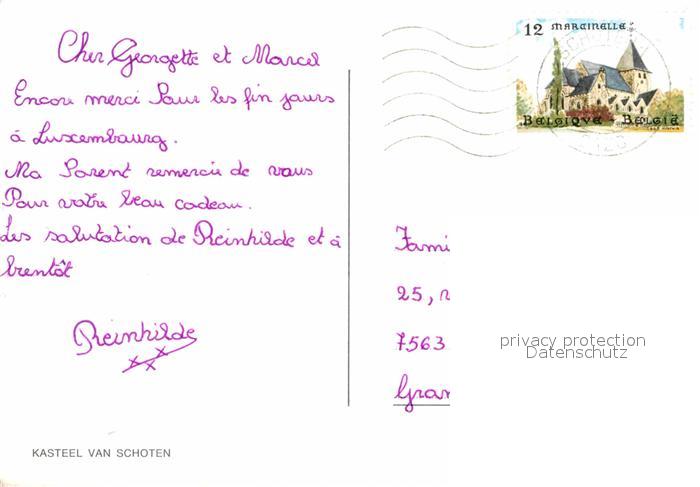 Cher Georgette et Marcel
Encore merci Pour les fin jours
à Luxembourg.
Ma Parent remercie de vous
Pour votre beau cadeau.
Les salutation de Reinhilde et à
bientôt
Reinhilde
xxx
KASTEEL VAN SCHOTEN
12 MARCINELLE
BELGIQUE BELGIË
Fami
25, r
7563
Gran
privacy protection
Datenschutz